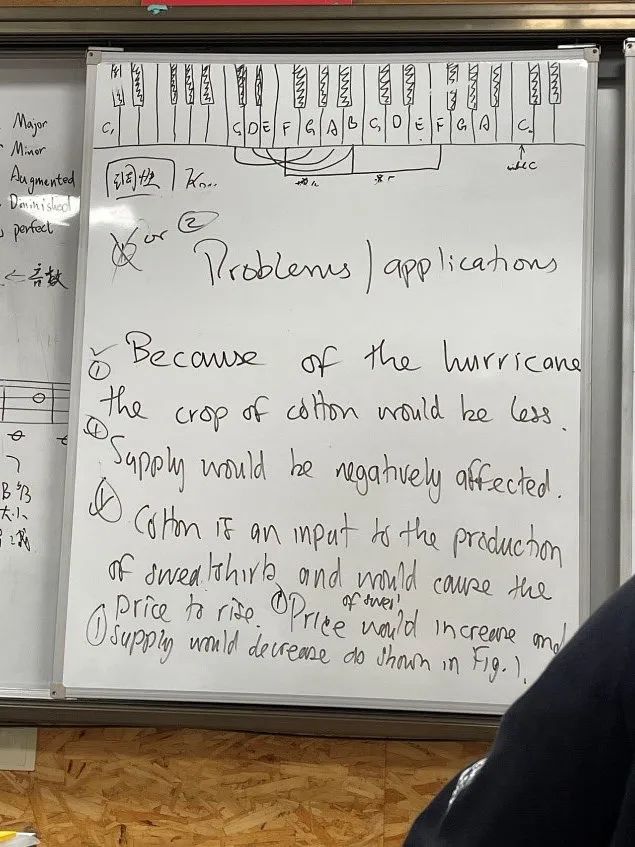 Major
Minor
Augmented
Diminished
perfect
←音数
C, C D E F G A B C D E F G A C
middle C
K...
or ②
Problems / applications
① Because of the hurricane
the crop of cotton would be less.
① Supply would be negatively affected.
Cotton is an input to the production
of sweatshirts and would cause the
price to rise. ① Price of swe would increase and
① supply would decrease as shown in Fig. 1.
B
大小